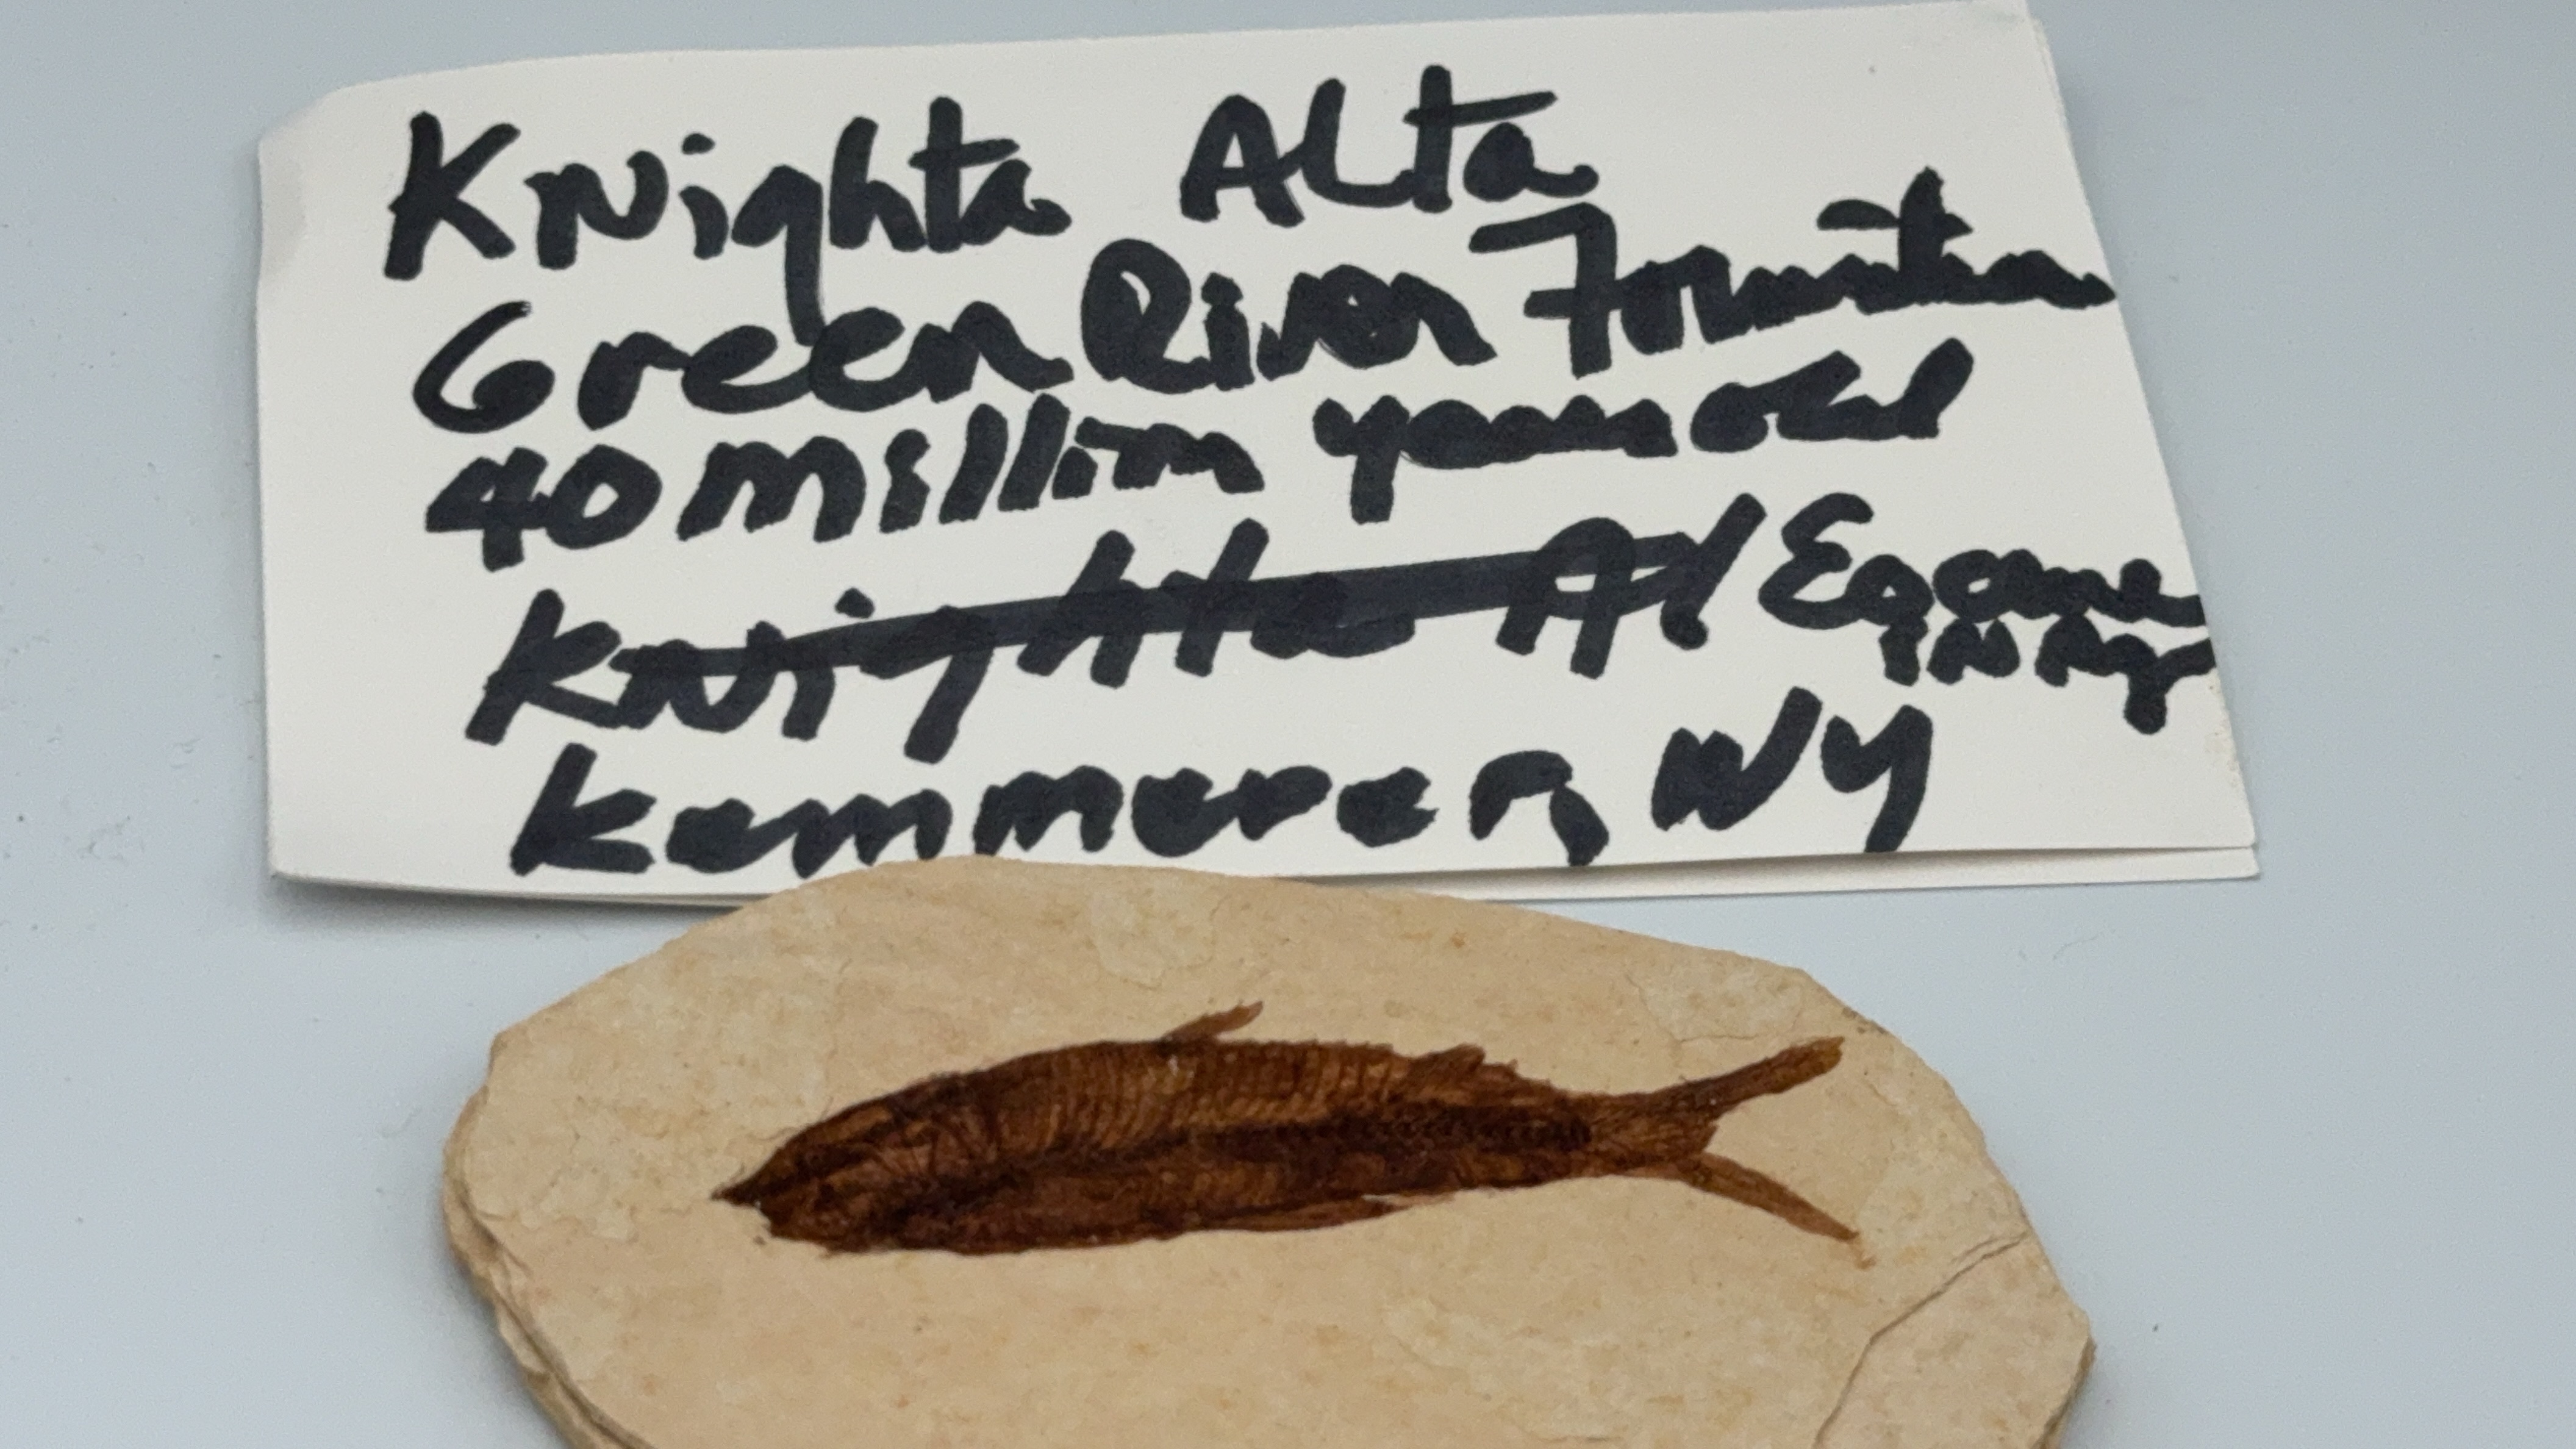 Knighta Alta
Green River Formation
40 Million years old
Knightia Al Eocene
in Age
Kemmerer, WY